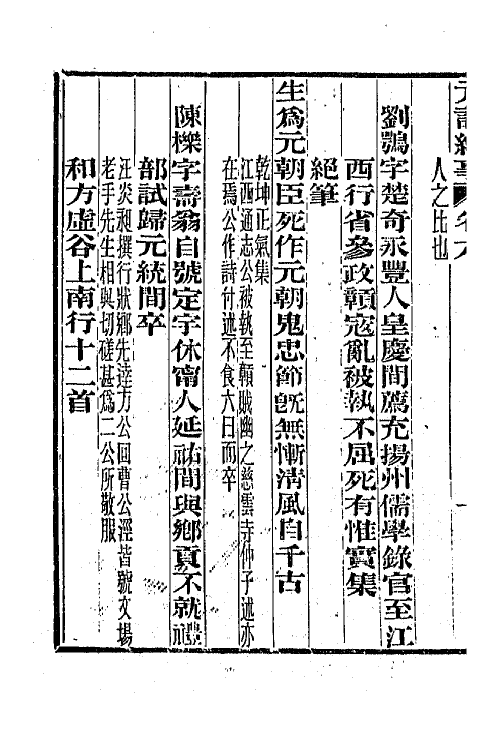 人之比也
劉鶚字楚奇永豐人皇慶間薦充揚州儒學錄官至江
西行省參政贛寇亂被執不屈死有惟實集
絕筆
生爲元朝臣死作元朝鬼忠節旣無慚淸風自千古
乾坤正氣集
江西通志公被執至贛賊幽之慈雲寺仲子述亦
在焉公作詩付述不食六日而卒
陳櫟字壽翁自號定宇休甯人延祐間與鄉貢不就禮
部試歸元統間卒
汪炎昶撰行狀鄉先達方公回曹公涇皆號文場
老手先生相與切磋甚爲二公所敬服
和方虛谷上南行十二首